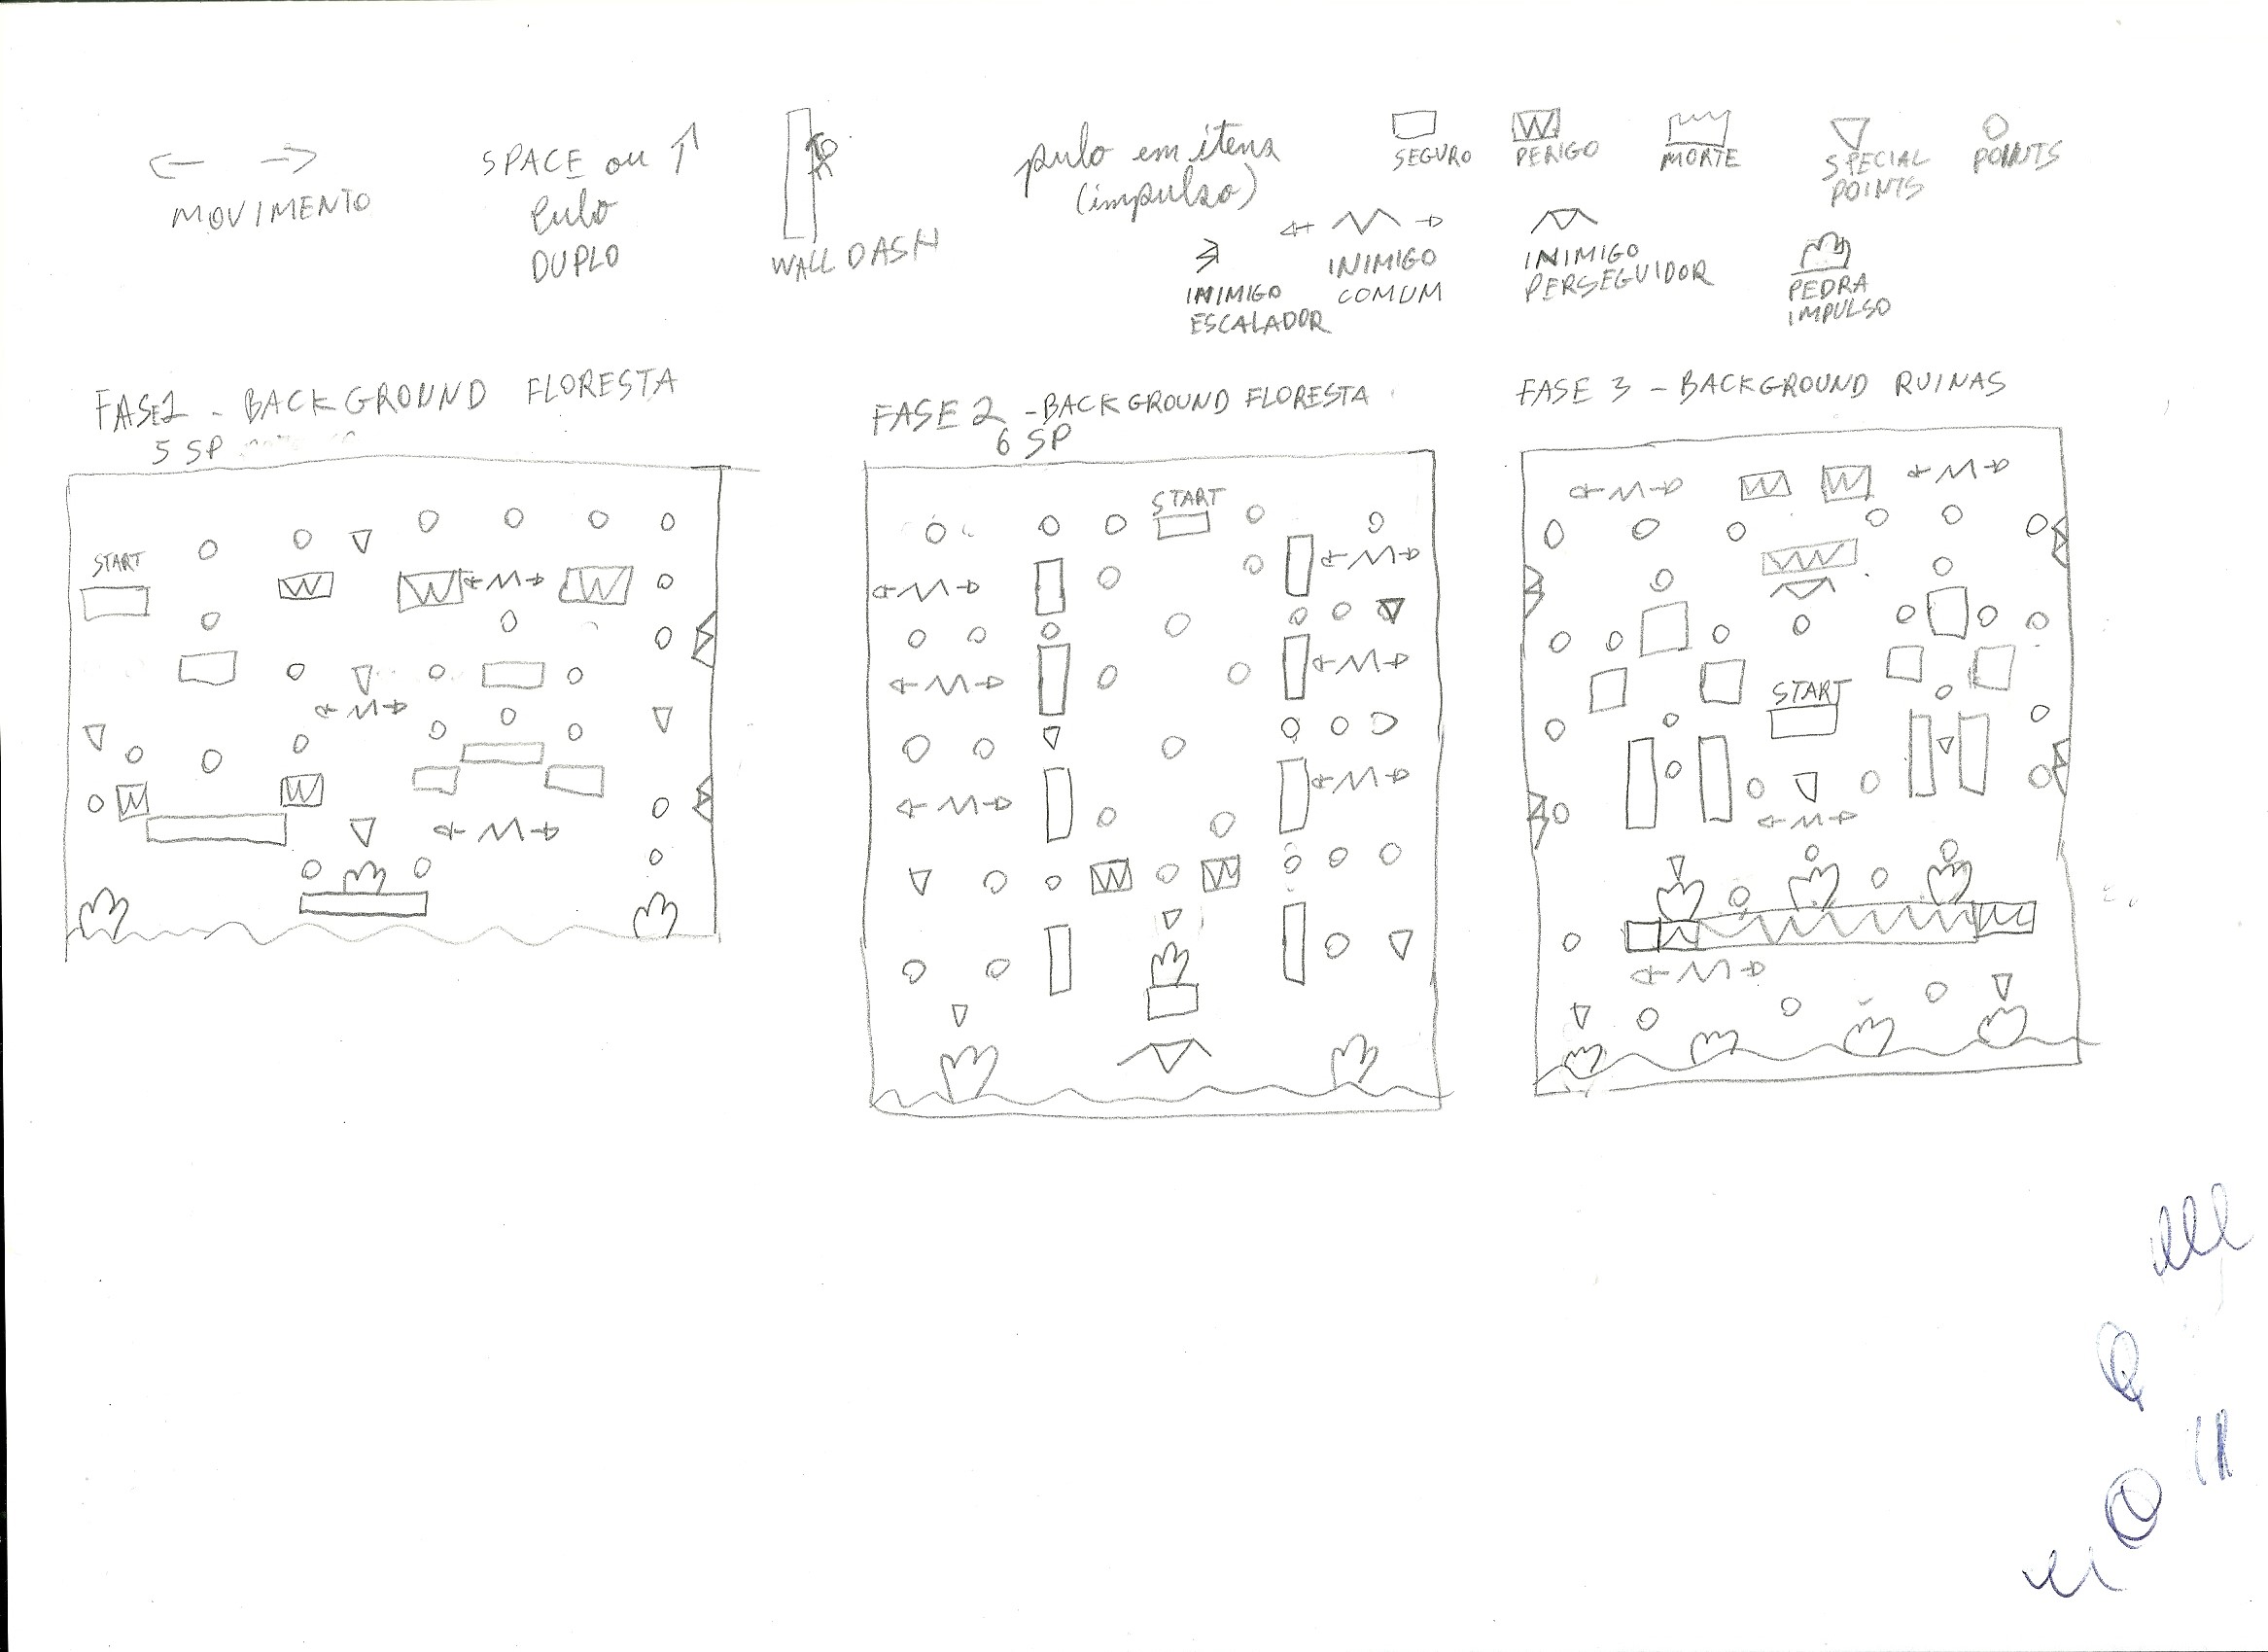 ← →
MOVIMENTO
SPACE ou ↑
Pulo
DUPLO
WALL DASH
pulo em itens
(impulso)
SEGURO
PERIGO
MORTE
SPECIAL
POINTS
POINTS
INIMIGO
ESCALADOR
INIMIGO
COMUM
INIMIGO
PERSEGUIDOR
PEDRA
IMPULSO
FASE1 - BACKGROUND FLORESTA
5 SP
START
FASE 2 - BACKGROUND FLORESTA
6 SP
START
FASE 3 - BACKGROUND RUINAS
START